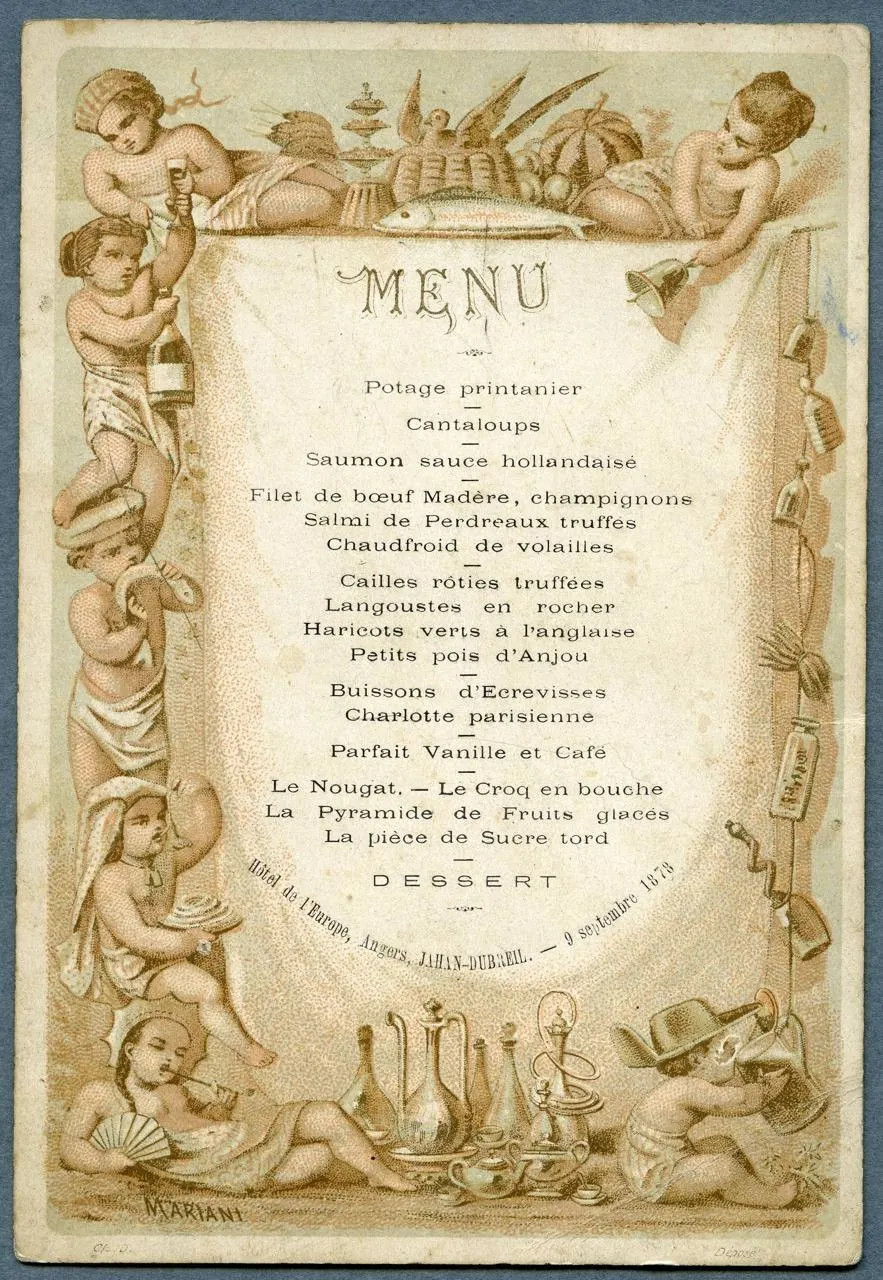 MENU
Potage printanier
Cantaloups
Saumon sauce hollandaise
Filet de bœuf Madère, champignons
Salmi de Perdreaux truffés
Chaudfroid de volailles
Cailles rôties truffées
Langoustes en rocher
Haricots verts à l'anglaise
Petits pois d'Anjou
Buissons d'Ecrevisses
Charlotte parisienne
Parfait Vanille et Café
Le Nougat. — Le Croq en bouche
La Pyramide de Fruits glacés
La pièce de Sucre tord
DESSERT
Hôtel de l'Europe, Angers, JAHAN-DUBREIL. — 9 septembre 1878
MARIANI
Déposé